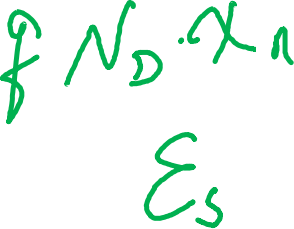 q N_D · x_n
ε_s